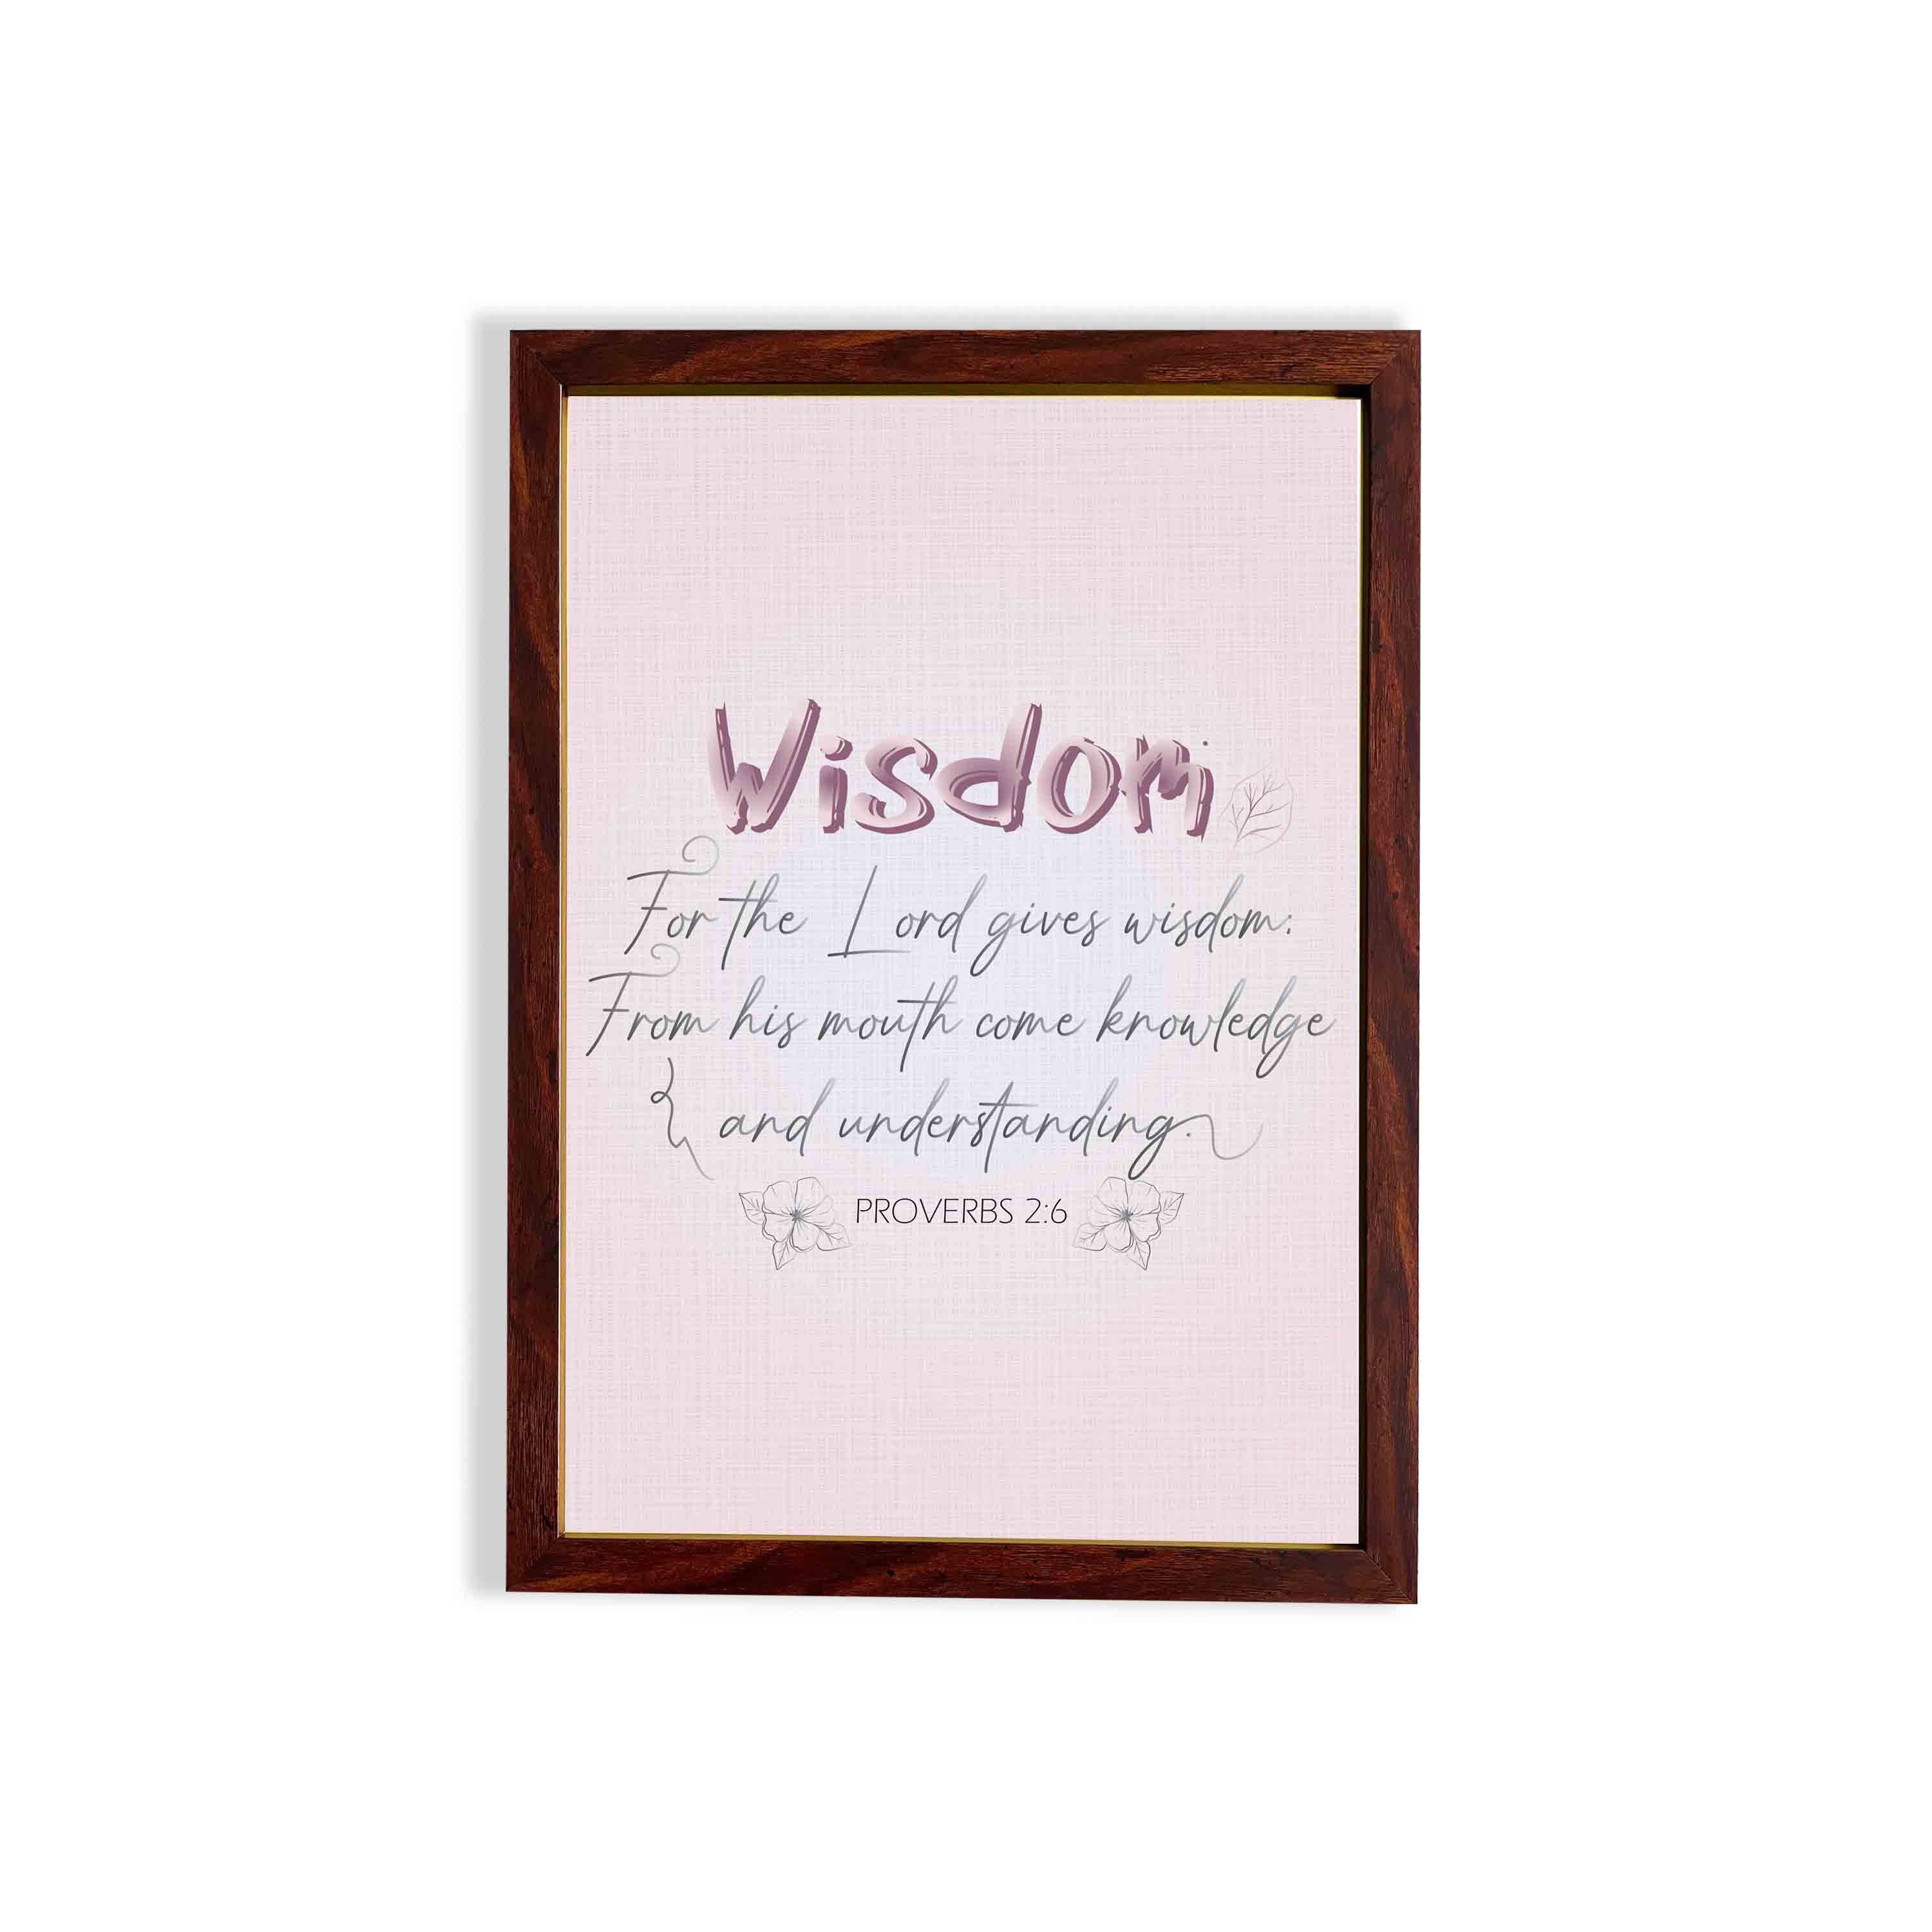 Wisdom
For the Lord gives wisdom:
From his mouth come knowledge
and understanding.
PROVERBS 2:6